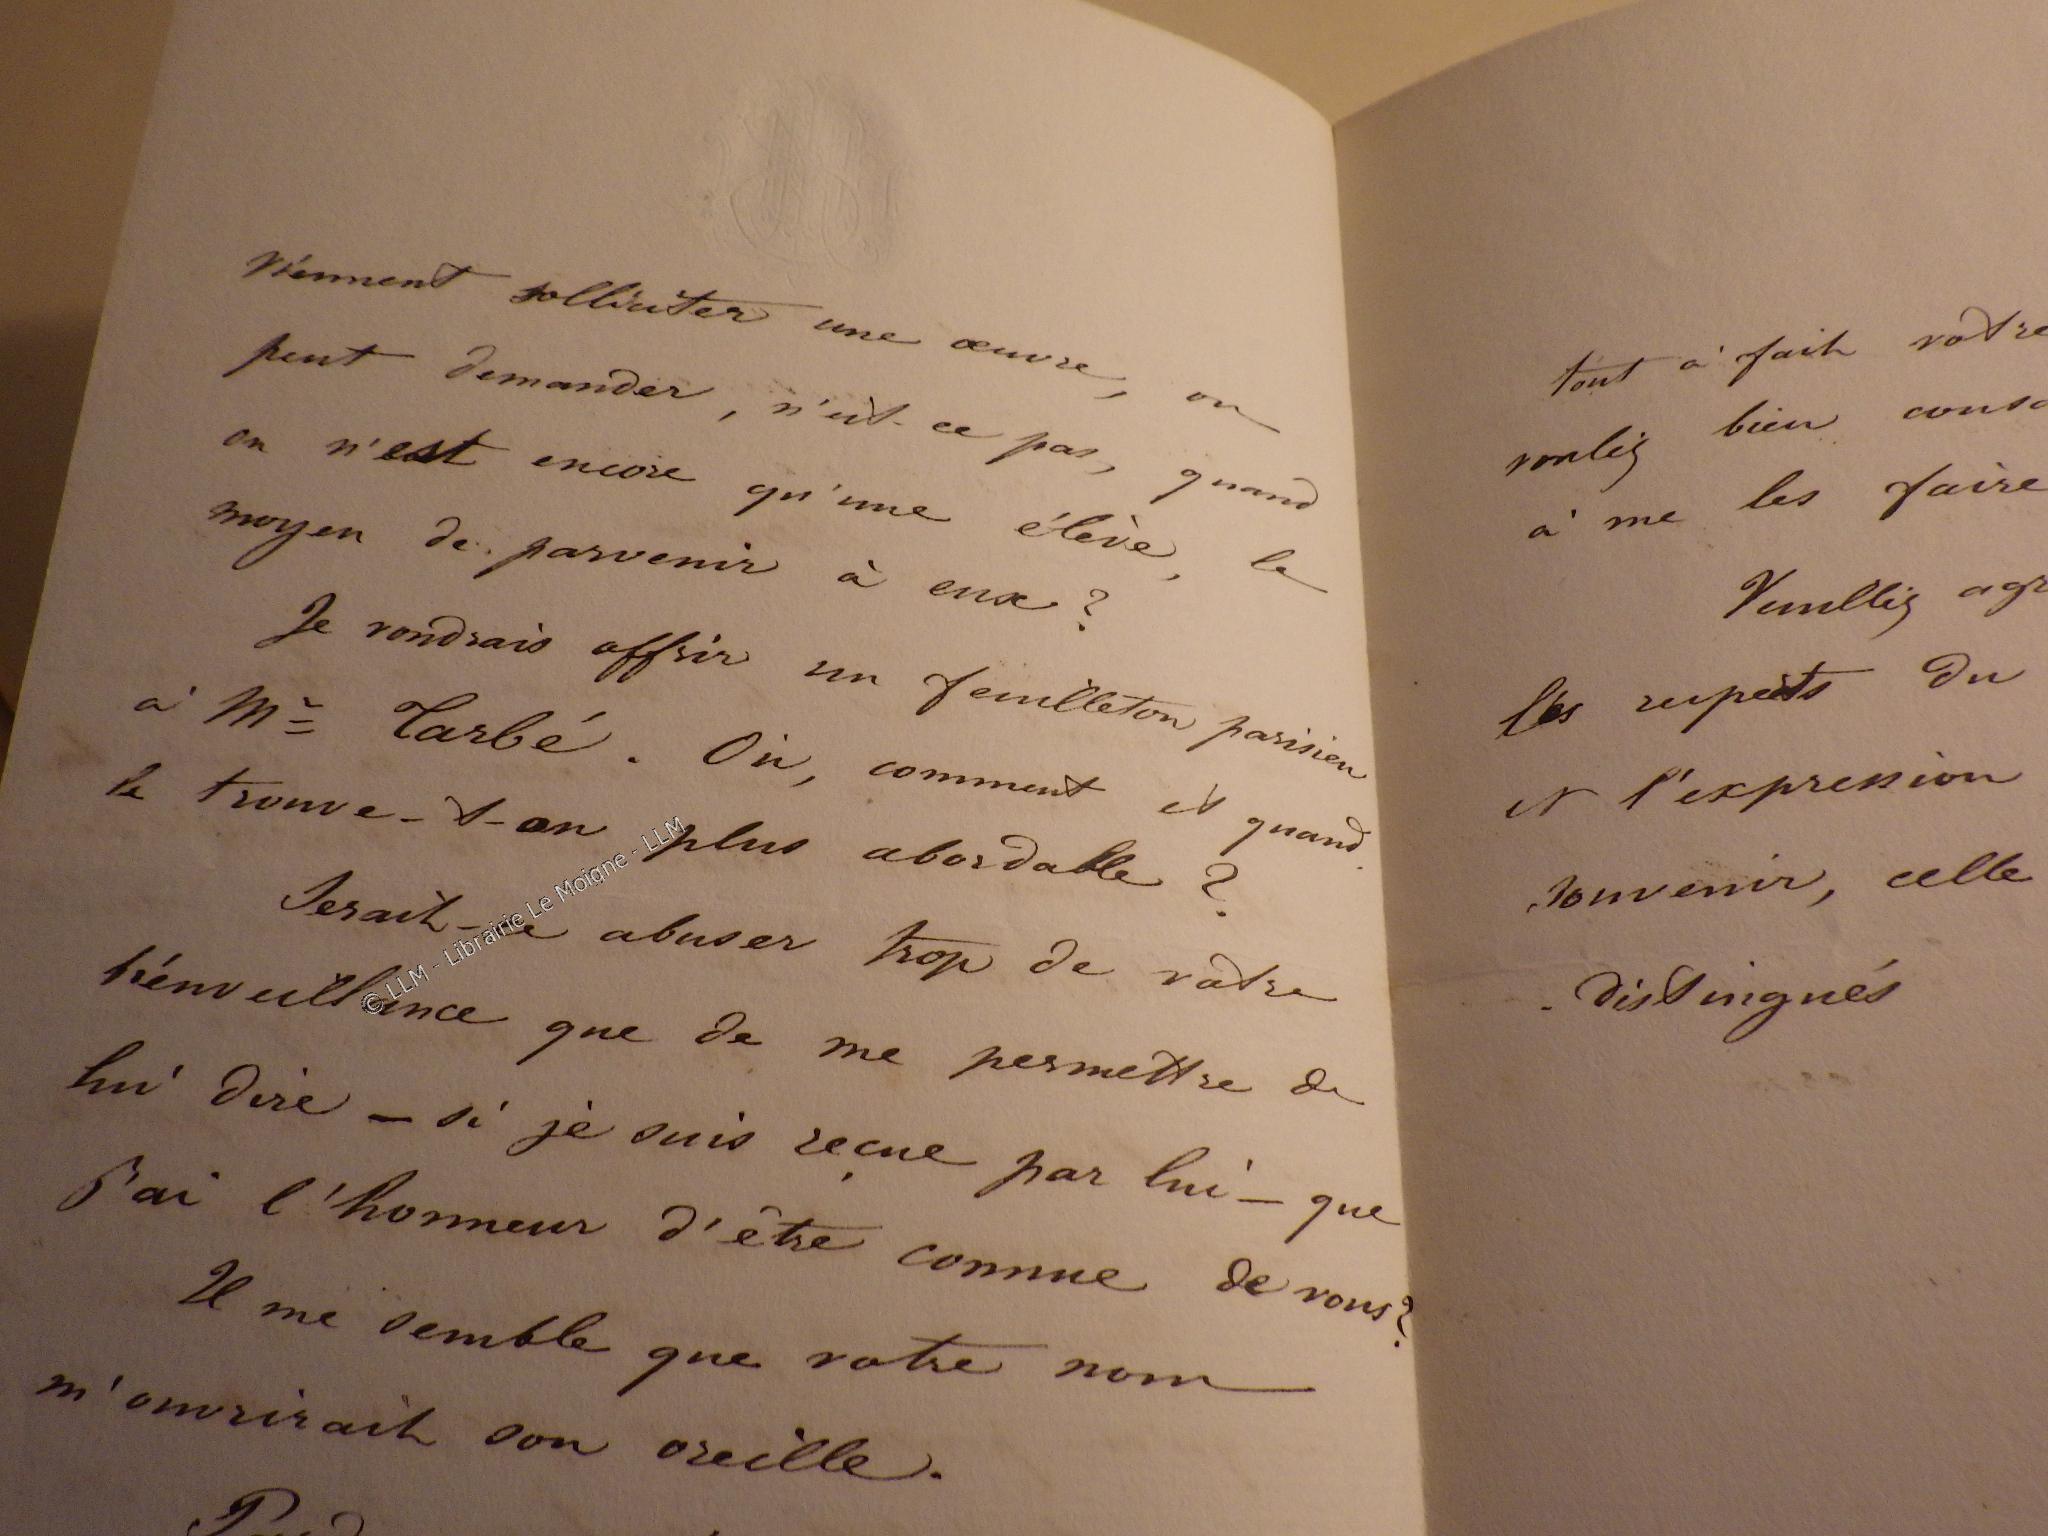 viennent solliciter une œuvre, on
peut demander, n'est-ce pas, quand
on n'est encore qu'une élève, le
moyen de parvenir à eux ?
Je voudrais offrir un feuilleton parisien
à Mr Tarbé. Où, comment et quand
le trouve-t-on plus abordable ?
Serait-ce abuser trop de votre
bienveillance que de me permettre de
lui dire – si je suis reçue par lui – que
j'ai l'honneur d'être connue de vous ?
Il me semble que votre nom
m'ouvrirait son oreille.
tout à fait votre
voulez bien
à me les faire
Veuillez
les respects du
et l'expression
souvenir, celle
distingués
© LLM - Librairie Le Moigne - LLM